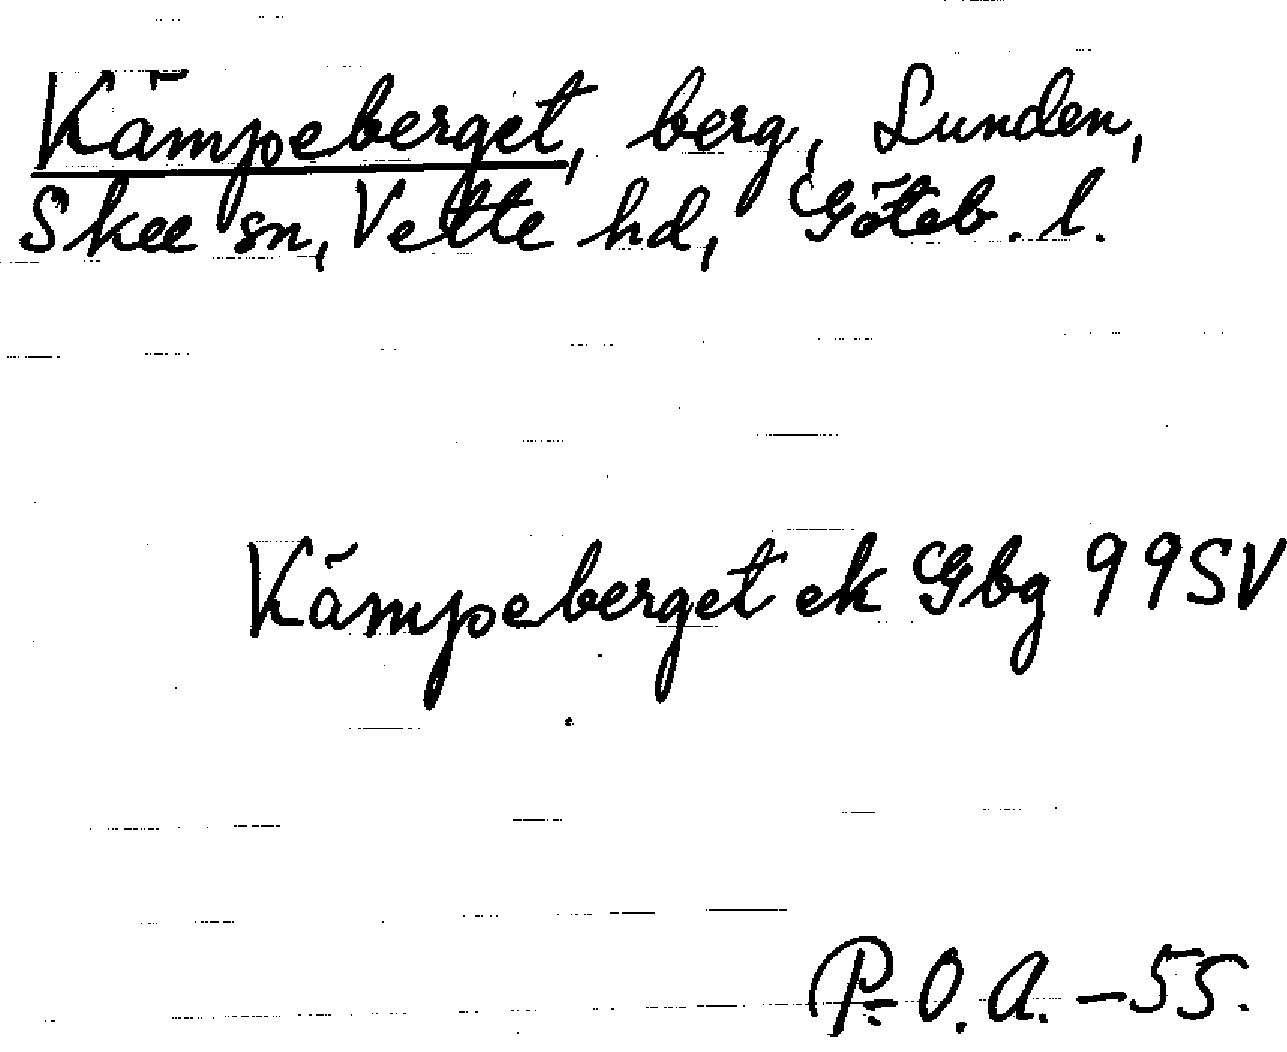 Kämpeberget, berg, Lunden,
Skee sn, Vette hd, Göteb. l.
Kämpeberget ek Gbg 99SV
P.O.A. - 55.